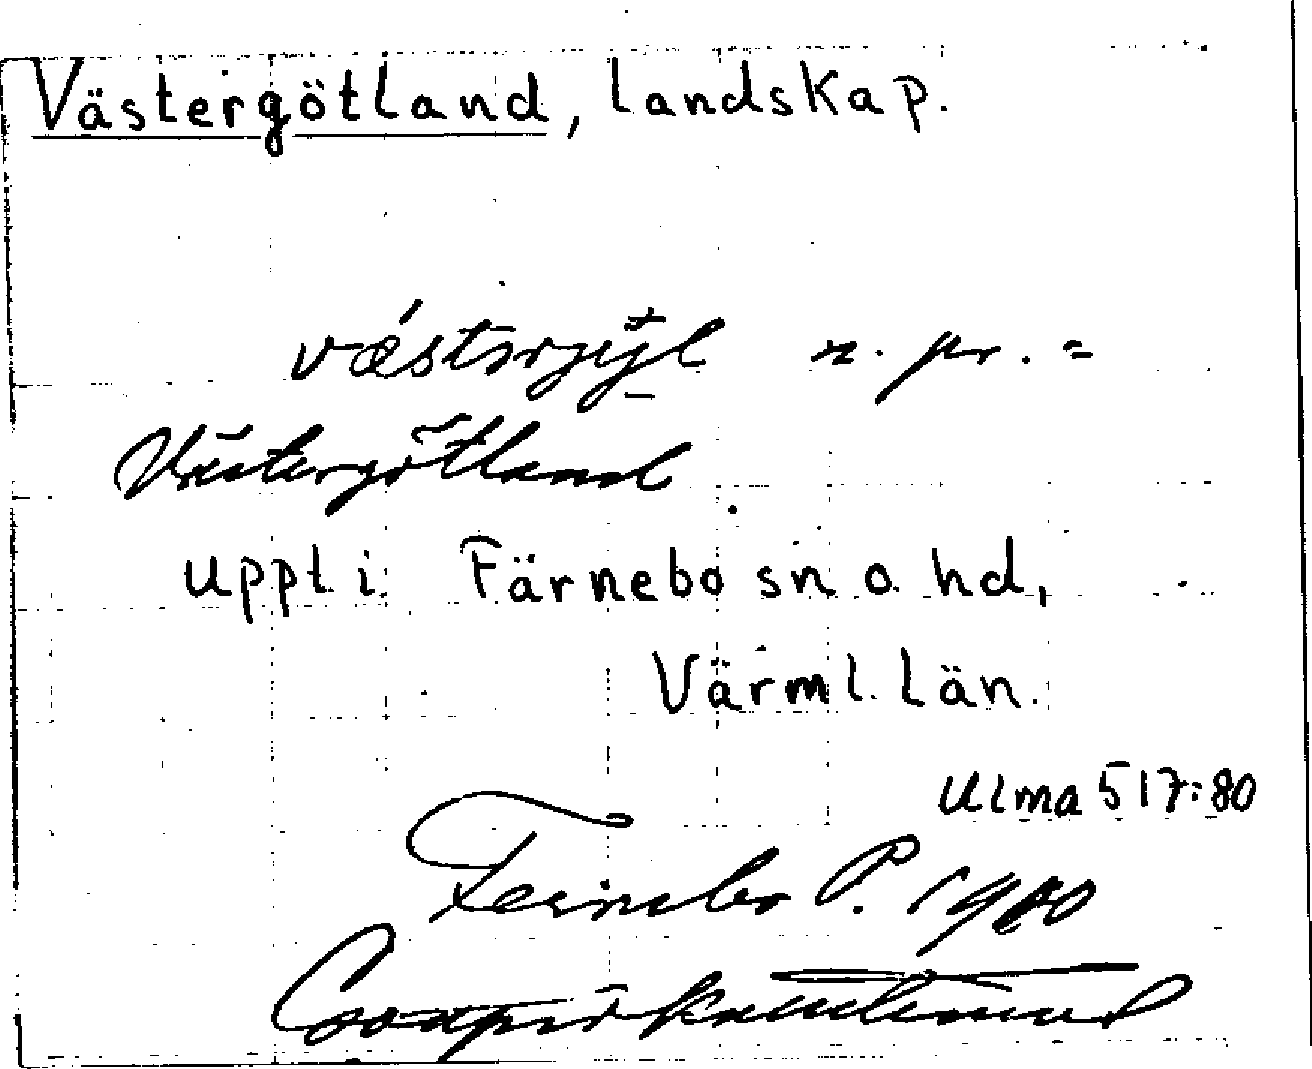 Västergötland, landskap.
n. pr. =
Västergötland
uppt. i Färnebo sn o. hd,
Värml. län.
Ulma 517:80
Fernebo P. 1910